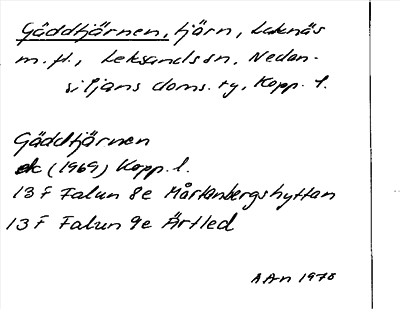 Gäddtjärnen, tjärn, Laknäs
m. fl., Leksands sn, Nedan-
siljans doms. ty, Kopp. l.
Gäddtjärnen
ek (1969) Kopp. l.
13 F Falun 8e Mårtanbergshyttan
13 F Falun 9e Ärtled
AAn 1978